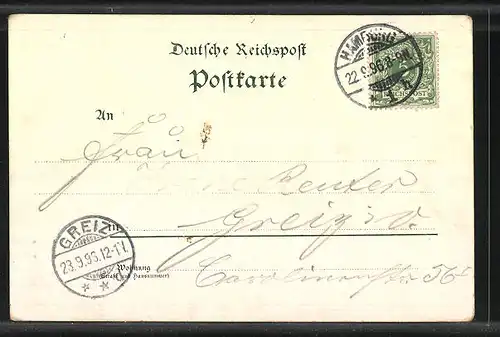 Deutsche Reichspost
Postkarte
HAMBURG
22.9.96.
REICHSPOST
An
Frau
Reuter
in Greiz i/V.
GREIZ
23.9.96.12-1V.
Wohnung
(Straße und Hausnummer)
Carolinenstr